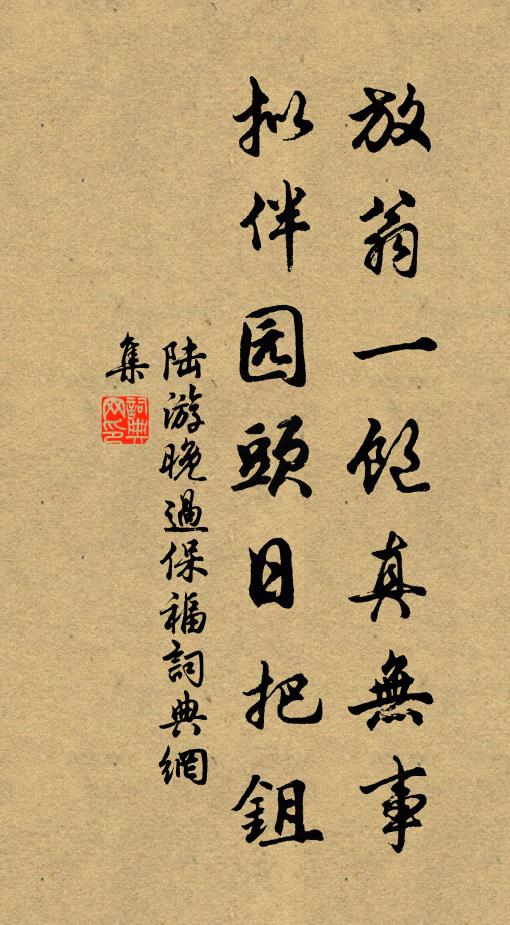 放翁一飽真無事
拟伴园頭日把鉏
陆游晚過保福詞典網
集
詞典网印